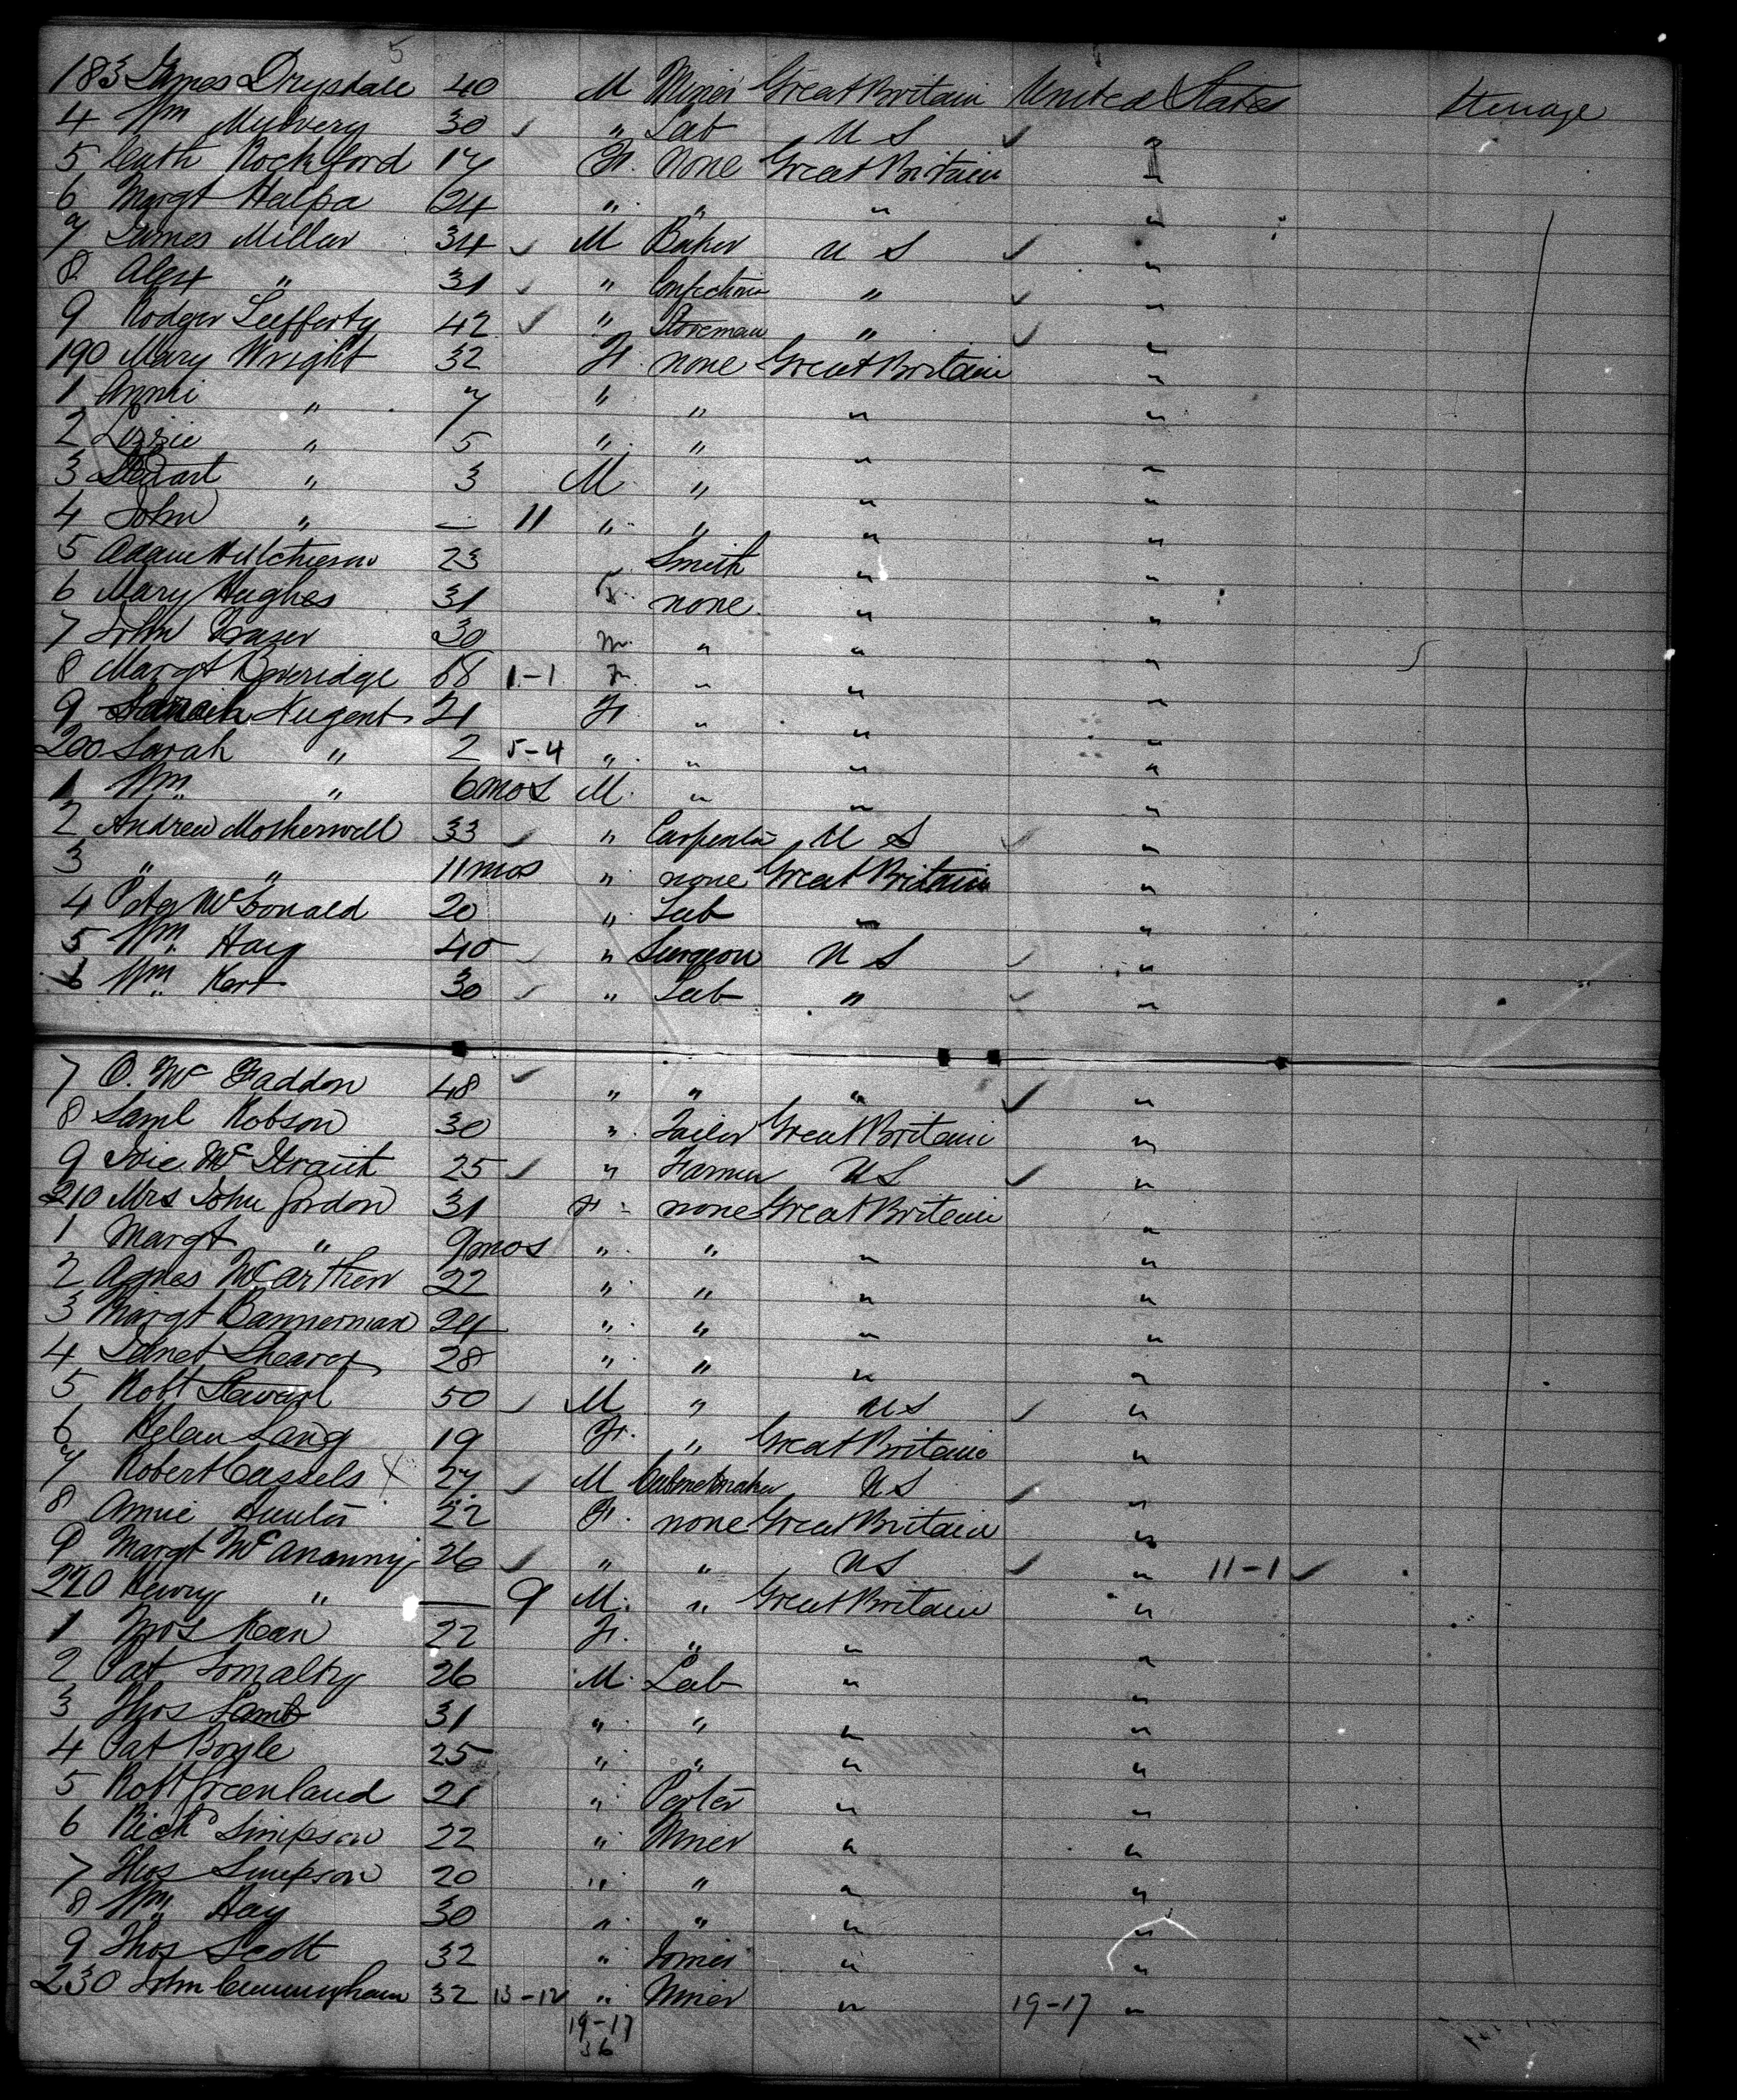 5
183 James Drysdale 40 M Miner Great Britain United States Steerage
4 Wm Mulvery 30 ✓ " Lab U S ✓ "
5 Cath Rockford 17 F. None Great Britain "
6 Margt Halpa 24 " " " "
7 James Millar 34 ✓ M Baker U S ✓ "
8 Alex " 31 ✓ " Confectioner " ✓ "
9 Rodger Lafferty 42 ✓ " Storeman " ✓ "
190 Mary Wright 32 F. none Great Britain "
1 Annie " 7 " " " "
2 Lizzie " 5 " " " "
3 " 3 M. " " "
4 John " — 11 " " " "
5 Adam Hutcheson 23 Smith " "
6 Mary Hughes 31 F. none " "
7 John Fraser 30 M. " " "
8 Margt Beveridge 1-1 F. " " "
9 Nugent 21 F. " " "
200 Sarah " 2 5-4 " " " "
1 Wm " 6 mos M. " " "
2 Andrew Motherwell 33 ✓ " Carpenter U S ✓ "
3 " " 11 mos " none Great Britain "
4 McDonald 20 " Lab " "
5 Wm. Hay 40 ✓ " Surgeon U S ✓ "
6 Wm Kerr 30 ✓ " Lab " ✓ "
7 O. Mc Faddon 48 ✓ " " " ✓ "
8 Saml Robson 30 " Tailor Great Britain "
9 25 ✓ " Farmer U S ✓ "
210 Mrs John Gordon 31 F none Great Britain "
1 Margt " 9 mos " " " "
2 Agnes McArthur 22 " " " "
3 Margt Bannerman 24 " " " "
4 Janet Shearer 28 " " " "
5 Robt Stewart 50 ✓ M " U S ✓ "
6 Helen Lang 19 F. " Great Britain "
7 Robert Cassels X 27 ✓ M Cabinetmaker U S ✓ "
8 Annie Hunter 22 F. none Great Britain "
9 Margt McAnanny 26 ✓ " " U S ✓ " 11-1 ✓
220 Henry " — 9 M. " Great Britain "
1 Mrs Kean 22 F. " " "
2 Pat 26 M. Lab " "
3 Thos Lamb 31 " " " "
4 Pat Boyle 25 " " " "
5 Robt Greenland 21 " Porter " "
6 Richd Simpson 22 " Miner " "
7 Thos Simpson 20 " " " "
8 Wm Hay 30 " " " "
9 Thos Scott 32 " Joiner " "
230 John Cunningham 32 13-12 " Miner " 19-17 "
19-17
36